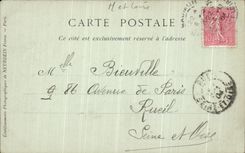 M et Loire
CARTE POSTALE
Ce côté est exclusivement réservé à l'adresse
Mlle Bienville
9 86 Avenue de Paris
Rueil
Seine et Oise
Etablissements Photographiques de NEURDEIN Frères. — Paris.